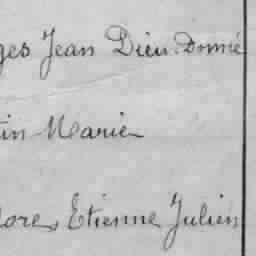 ges Jean Dieu-Donné
tin Marie
dore, Etienne Julien